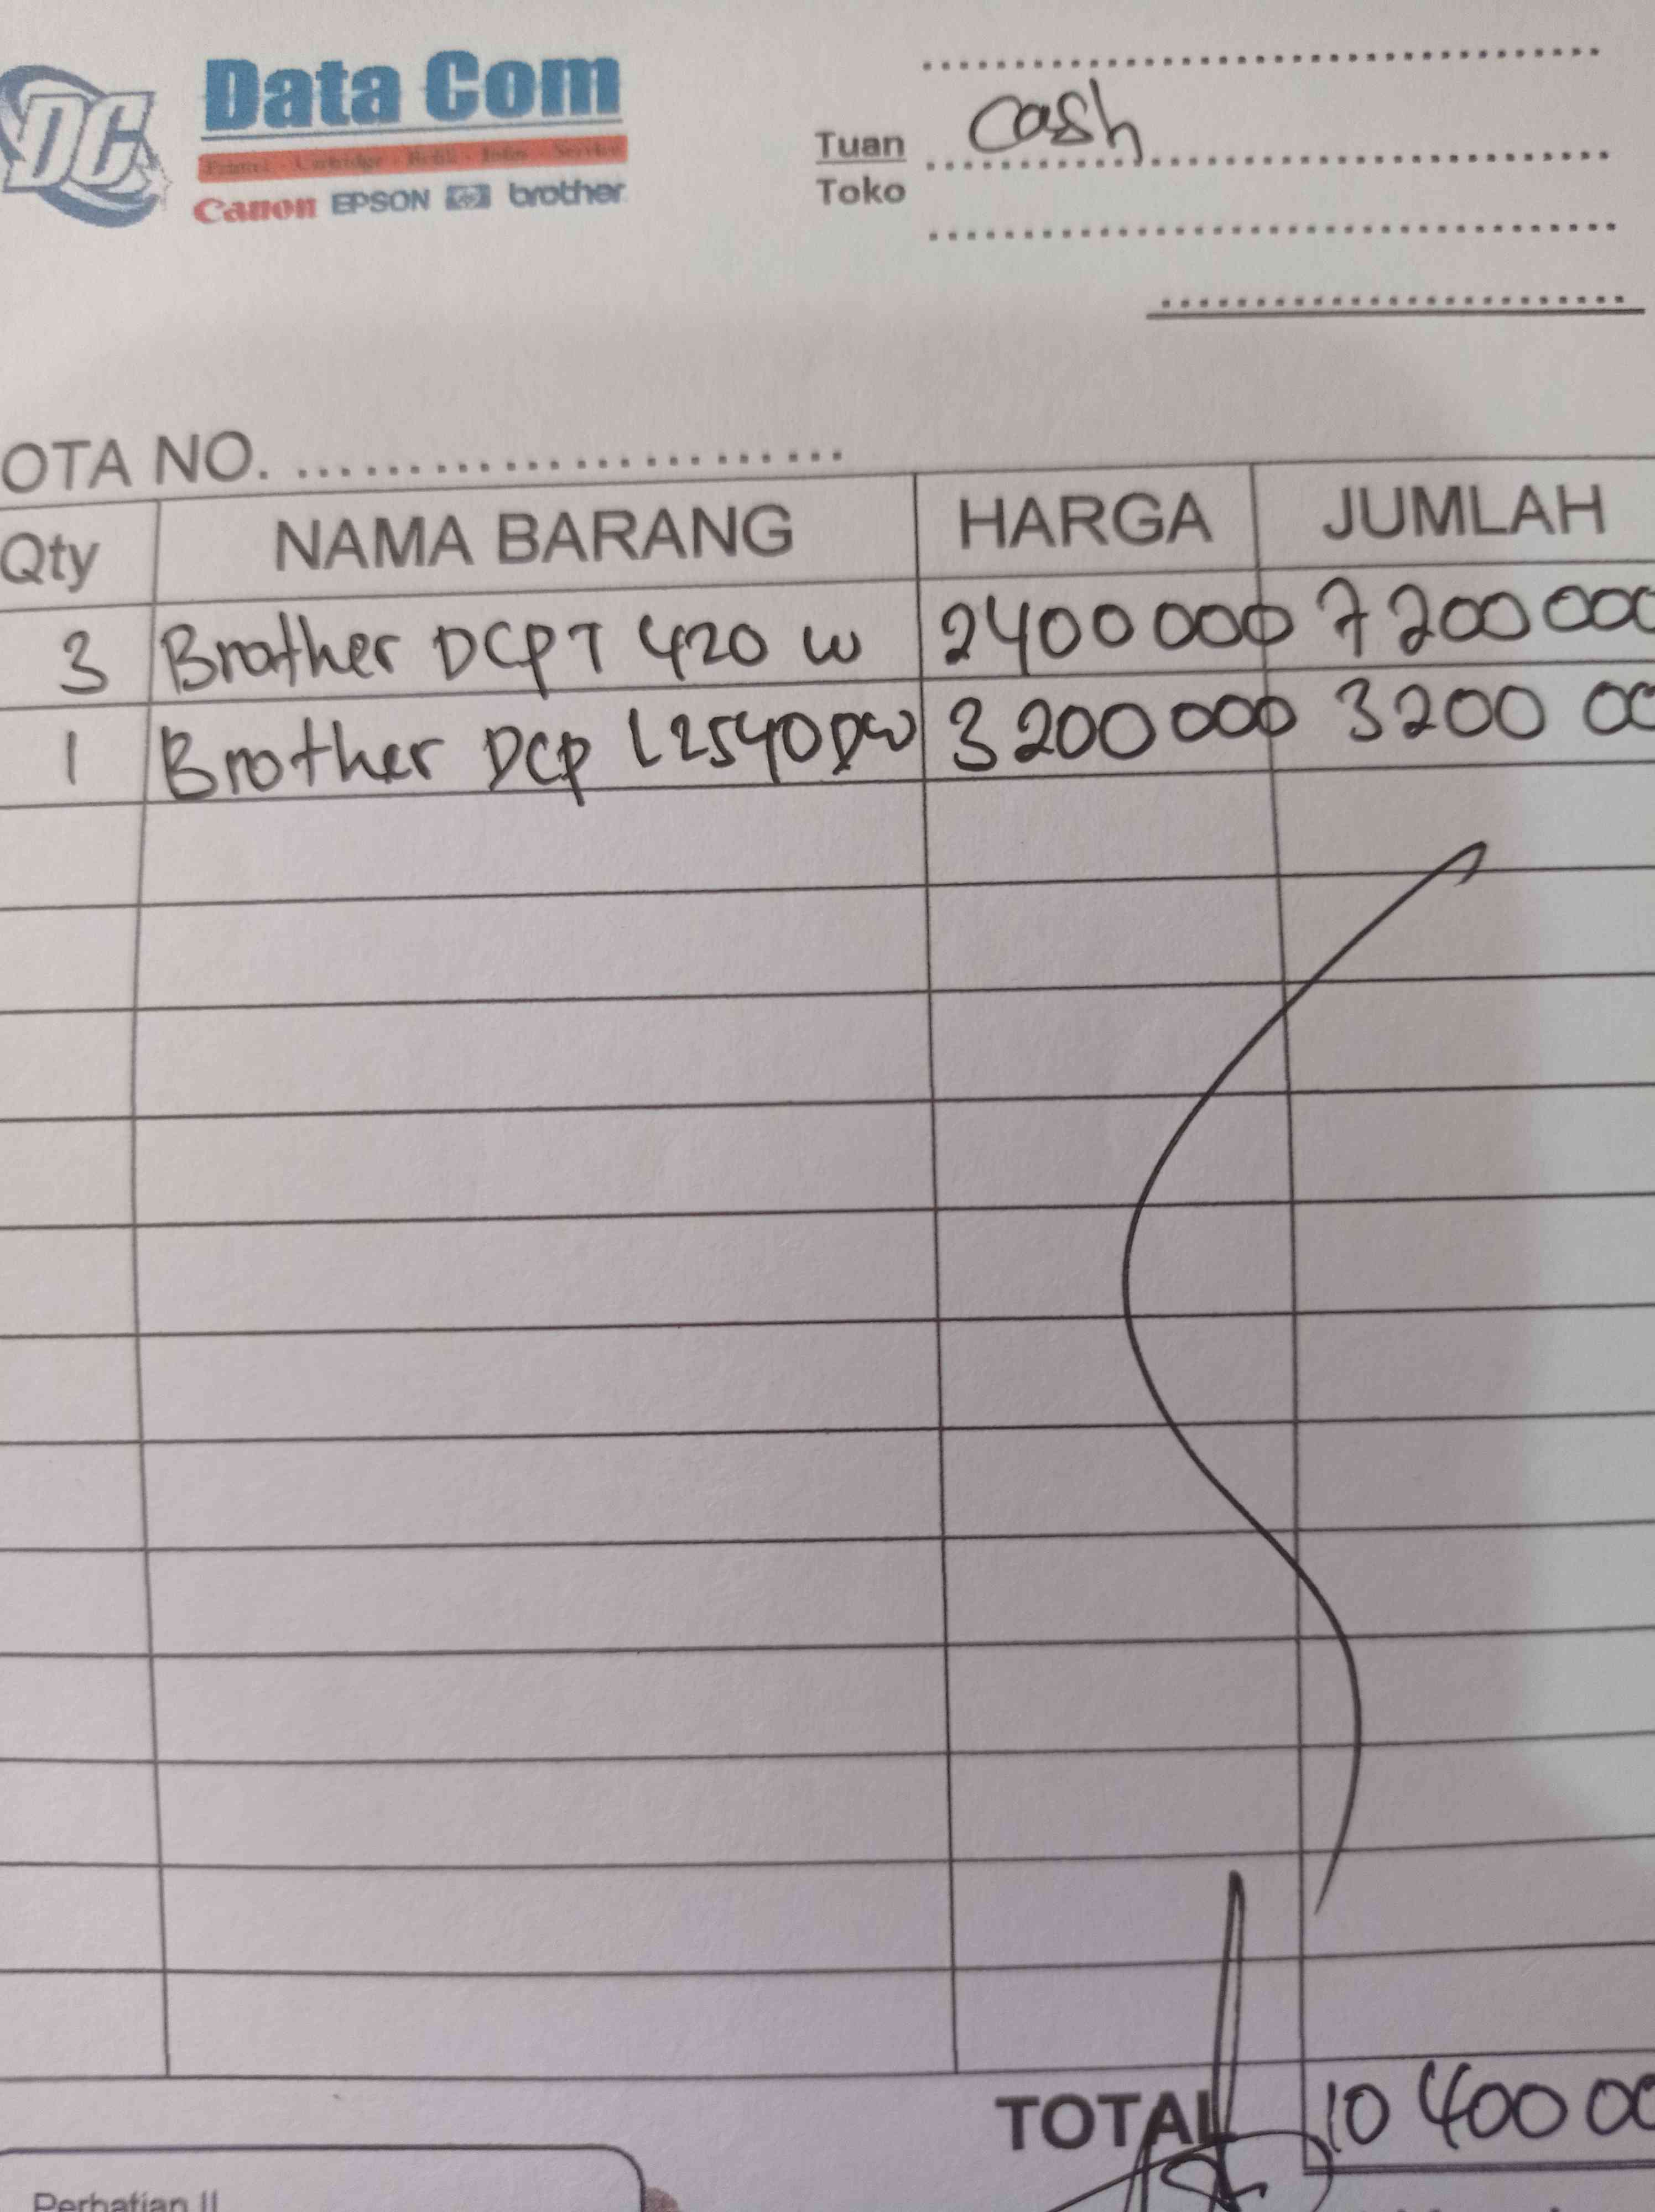 DC
Data Com
Printer - Catridge - Refill - Infus - Service
Canon EPSON hp brother
Tuan cash
Toko
OTA NO. ........................
Qty NAMA BARANG HARGA JUMLAH
3 Brother DCP T 420 W 2400 000 7 200 000
1 Brother DCP L2540DW 3 200 000 3200 00
TOTAL 10 400 00
Perhatian !!